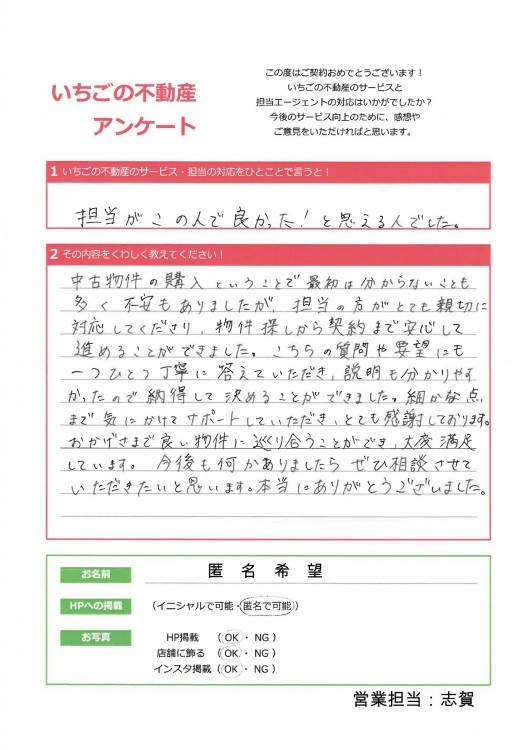 いちごの不動産
アンケート
この度はご契約おめでとうございます！
いちごの不動産のサービスと
担当エージェントの対応はいかがでしたか？
今後のサービス向上のために、感想や
ご意見をいただければと思います。
1 いちごの不動産のサービス・担当の対応をひとことで言うと！
担当がこの人で良かった！と思える人でした。
2 その内容をくわしく教えてください！
中古物件の購入ということで最初は分からないことも
多く不安もありましたが、担当の方がとても親切に
対応してくださり、物件探しから契約まで安心して
進めることができました。こちらの質問や要望にも
一つひとつ丁寧に答えていただき、説明も分かりやす
かったので納得して決めることができました。細かな点
まで気にかけてサポートしていただき、とても感謝しております。
おかげさまで良い物件に巡り合うことができ、大変満足
しています。今後も何かありましたらぜひ相談させて
いただきたいと思います。本当にありがとうございました。
お名前 匿名希望
HPへの掲載 （イニシャルで可能・匿名で可能）
お写真 HP掲載 （OK・NG）
店舗に飾る （OK・NG）
インスタ掲載（OK・NG）
営業担当：志賀